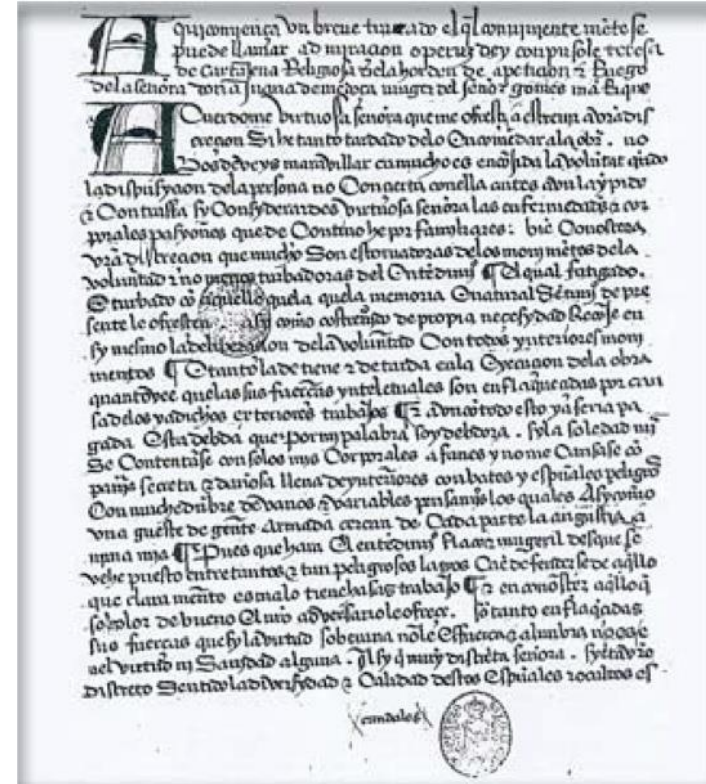 Aqui comiença vn breue tractado el q̃l conuinientemẽte se
puede llamar admiraçion operũ dey conpusole teresa
de Cartajena Religiosa de la horden de a petiçion τ Ruego
de la señora doña juana de mẽdoça muger del señor gomes mãrrique
Acuerdome virtuosa señora que me ofresçi a escreuir a vr̃a dis
creçion Si he tanto tardado de lo Encomẽdar a la obr̃. no
vos deueys marauillar ca mucho es encojida la volũtat q̃ndo
la dispusyçion de la persona no Conçerta con ella antes avn la ỹpide
τ Contrasta sy Considerardes virtuosa señora las enfermedades τ cor
porales pasyones que de Contino he por familiares: biẽ Conosçera
vr̃a discreçion que mucho Son estoruadoras de los mouimẽtos de la
voluntad τ no menos turbadoras del Entẽdimĩ ¶ El qual fatigado.
E turbado cõ aquello que la quela memoria E natural Sẽtimĩ de pre
sente le ofresçen. asy como costreñido de propia neçesydad Recoje en
sy mesmo la deliberaçion de la voluntad Con todos ynteriores moui
mentos ¶ E tanto la detiene τ detarda en la Execuçion de la obra
quanto vee que las sus fuerças ynteletuales son enflaqueçidas por cav
sa de los ya dichos exteriores trabajos ¶ E avn cõ todo esto ya seria pa
gada Esta debda que por mi palabra soy debdora. sy la soledad mĩ
Se Contentase con solos mis Corporales afanes y no me Cavsase cõ
pañia secreta τ dañosa llena de ynteriores conbates y espũales peligros
Con muchedũbre de vanos τ variables pensamĩs los quales Asy como
vna hueste de gente Armada çercan de Cada parte la angustiada
anima mia ¶ Pues que hara El entẽdimĩ flaco τ mugeril desque se
vehe puesto entre tantos τ tan peligrosos lazos Ca è defenderse de aq̃llo
que clara mente es malo tiene asaz trabajo ¶ E en conosçer aq̃llo q̃
so color de bueno El nr̃o aduersario le ofreçe. sõ tanto enflaq̃çidas
sus fuerças que sy la virtud soberana nõ le Esfuerça τ alunbra no es en
el virtud ni Sanidad alguna. Asy q̃ muy discreta señora. syẽta vr̃o
discreto Sentido la diuersydad τ Calidad destos Espũales τ ocultos es
candalos